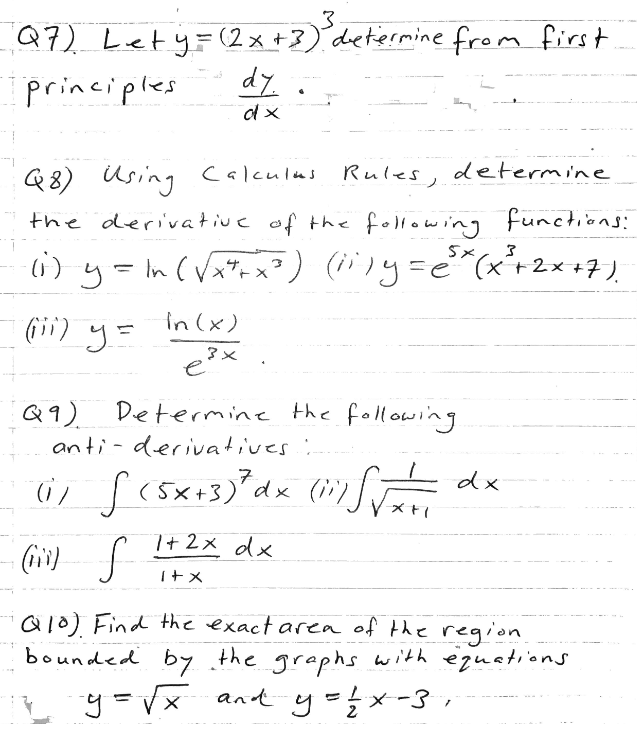 Q7) Let y = (2x+3)³ determine from first
principles dy/dx.
Q8) Using Calculus Rules, determine
the derivative of the following functions:
(i) y = ln(√(x⁴+x³)) (ii) y = e⁵ˣ(x³+2x+7).
(iii) y = ln(x)/e³ˣ.
Q9) Determine the following
anti-derivatives:
(i) ∫(5x+3)⁷dx (ii) ∫1/√(x+1) dx
(iii) ∫(1+2x)/(1+x) dx
Q10) Find the exact area of the region
bounded by the graphs with equations
y = √x and y = ½x-3,